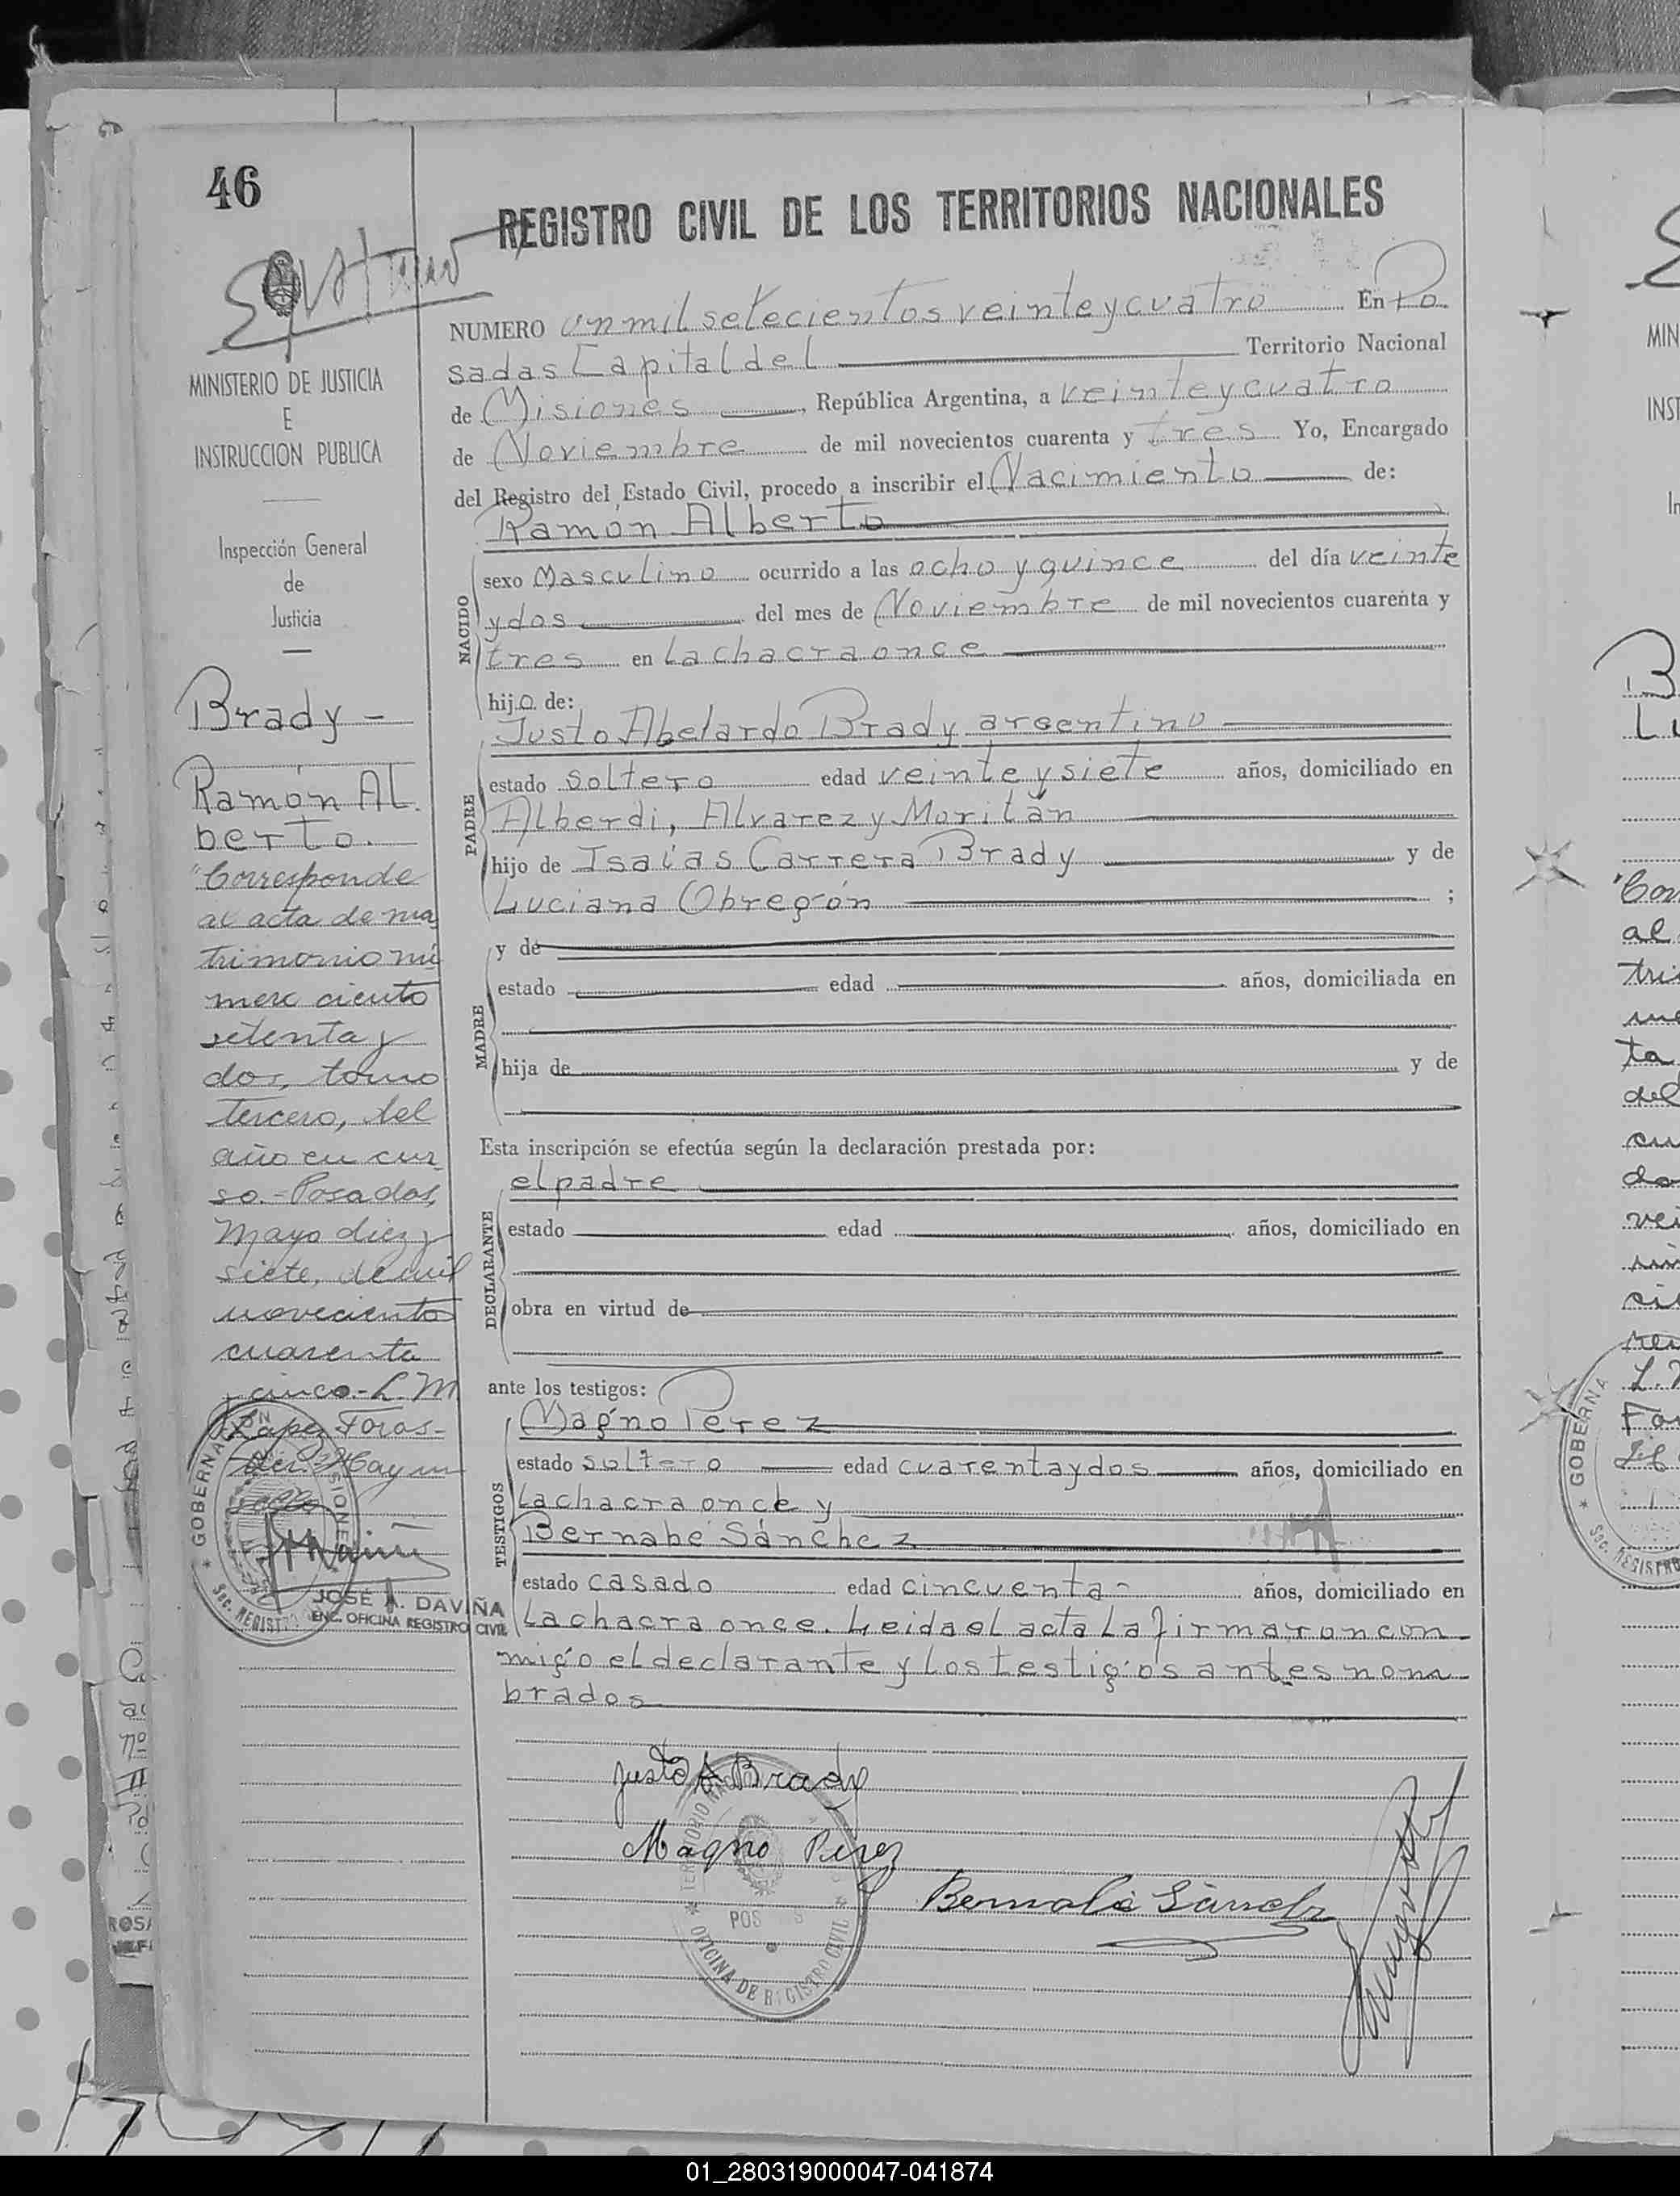 46
REGISTRO CIVIL DE LOS TERRITORIOS NACIONALES
MINISTERIO DE JUSTICIA
E
INSTRUCCION PUBLICA
Inspección General
de
Justicia
Brady -
Ramón Al
berto.
"Corresponde
al acta de ma
trimonio nú
mero ciento
setenta y
dos, tomo
tercero, del
año en cur
so.- Posadas,
Mayo diez y
siete, de mil
novecientos
cuarenta
y cinco.- L. M.
Lopez Foras-
Hay un
sello
GOBERNA
JOSÉ A. DAVIÑA
ENC. OFICINA REGISTRO CIVIL
NUMERO un mil setecientos veinte y cuatro En Po
sadas Capital del Territorio Nacional
de Misiones, República Argentina, a veinte y cuatro
de Noviembre de mil novecientos cuarenta y tres Yo, Encargado
del Registro del Estado Civil, procedo a inscribir el Nacimiento de:
Ramón Alberto
NACIDO
sexo Masculino ocurrido a las ocho y quince del día veinte
y dos del mes de Noviembre de mil novecientos cuarenta y
tres en La chacra once
hijo de:
PADRE
Justo Abelardo Brady argentino
estado soltero edad veinte y siete años, domiciliado en
Alberdi, Alvarez y Moritán
hijo de Isaías Carrera Brady y de
Luciana Obregón ;
MADRE
y de
estado edad años, domiciliada en
hija de y de
Esta inscripción se efectúa según la declaración prestada por:
DECLARANTE
el padre
estado edad años, domiciliado en
obra en virtud de
ante los testigos:
TESTIGOS
Magno Perez
estado soltero edad cuarenta y dos años, domiciliado en
La chacra once y
Bernabé Sánchez
estado casado edad cincuenta - años, domiciliado en
La chacra once. Leida el acta la firmaron con
migo el declarante y los testigos antes nom
brados
Justo A Brady
Magno Perez
Bernabé Sánchez
OFICINA DE REGISTRO CIVIL
01_280319000047-041874